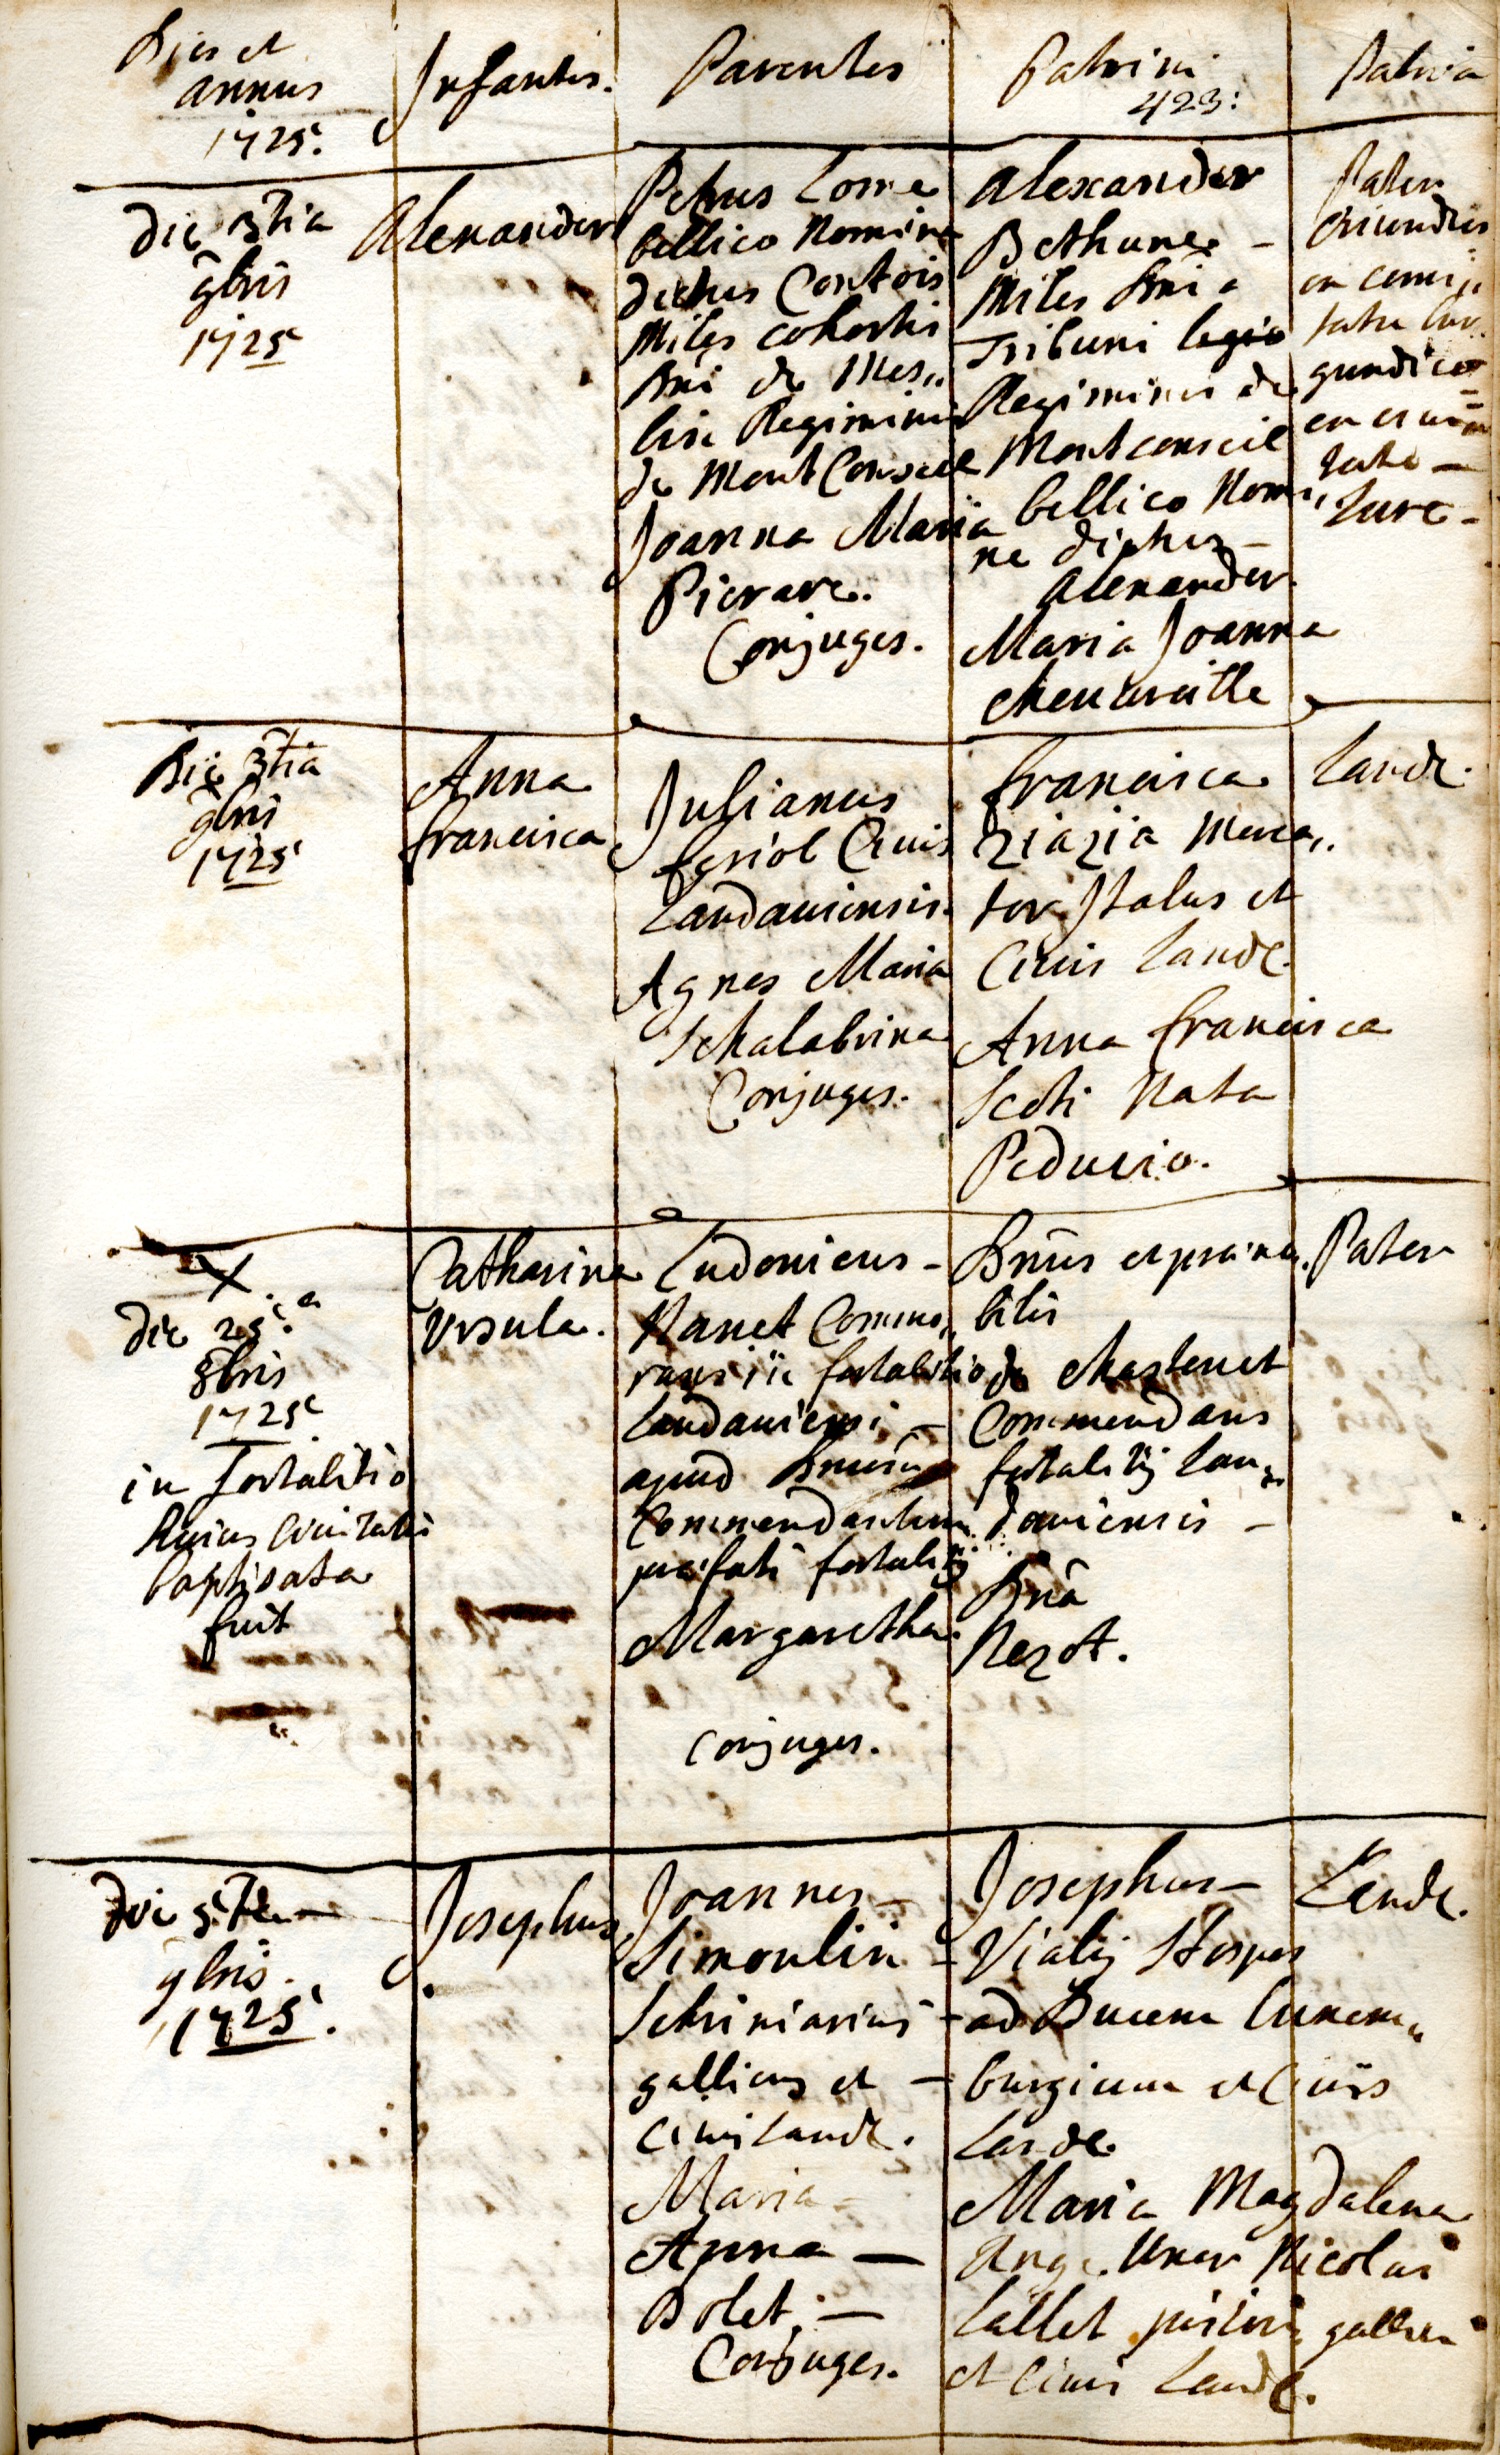 Dies et
annus
1725.
Infantes.
Parentes
Patrini
423:
Patria
die 3tia
9bris
1725
Alexander
Petrus Lome
bellico Nomine
dictus Contois
Miles cohortis
Dni de Mes„
Regiminis
de Mont Conseil
Joanna Maria
Pierare.
Conjuges.
Alexander
Bethune –
Miles Dni
Tribuni legio
Regiminis de
Montconseil
bellico Nomi„
ne dictus –
Alexander.
Maria Joanna
Pater
oriundus
ex comi„
tatu bur„
gundico
ex civi
tate –
Lure –
Die 3tia
9bris
1725
Anna
francisca
Julianus
feriol Civis
Landaviensis.
Agnes Maria
Schalabrina
Conjuges.
francisca
ziazia Merca„
tor Italus et
Civis Landc.
Anna francisca
Scoti Nata
Peducio.
Landc.
X.
die 25.a
8bris
1725
in fortalitio
huius Civitatis
baptisata
fuit
Catharina
Ursula.
Ludovicus –
Nanet Commo„
rans in fortalitio
Landaviensi –
apud Dnum
Commendantem
præfati fortalitij
Margaretha.
Conjuges.
Dnus et præno„
bilis
de Chastenet
Commendans
fortalitij Lan„
daviensis –
Dna
Nezot.
Pater
die 5te –
9bris.
1725.
Josephus
Joannes –
Simoulin –
Schriniarius –
gallicus et –
Civis Landc.
Maria –
Anna –
Dolet. –
Conjuges.
Josephus –
Vialij Hospes
ad Ducem Luxem„
burgicum et Civis
Landc.
Maria Magdalena
Ange. Uxor Nicolai
Lallet pistoris gallici
et Civis Landc.
Landc.